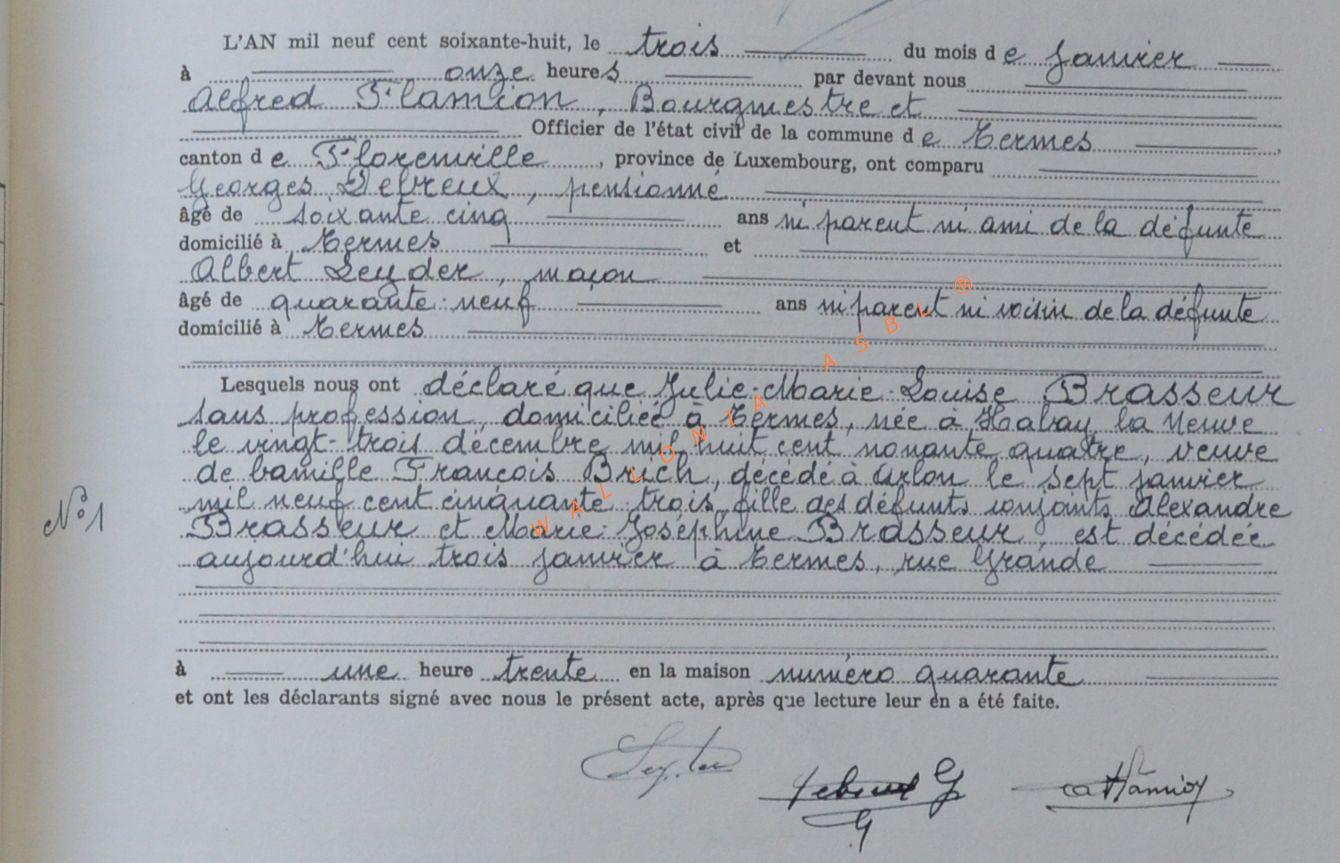 L'AN mil neuf cent soixante-huit, le trois du mois de Janvier
à onze heures par devant nous
Alfred Flamion, Bourgmestre et
Officier de l'état civil de la commune de Termes
canton de Florenville, province de Luxembourg, ont comparu
Georges Lefreux, pensionné
âgé de soixante cinq ans ni parent ni ami de la défunte
domicilié à Termes et
Albert Leyder, maçon
âgé de quarante-neuf ans ni parent ni voisin de la défunte
domicilié à Termes
Lesquels nous ont déclaré que Julie-Marie-Louise Brasseur
sans profession, domiciliée à Termes, née à Habay la Neuve
le vingt-trois décembre mil huit cent nonante quatre, veuve
de Camille François Brich, décédé à Arlon le sept janvier
N° 1
mil neuf cent cinquante trois, fille des défunts conjoints Alexandre
Brasseur et Marie-Joséphine Brasseur, est décédée
aujourd'hui trois janvier à Termes, rue Grande
à une heure trente en la maison numéro quarante
et ont les déclarants signé avec nous le présent acte, après que lecture leur en a été faite.
WALLONIA ASBL ®